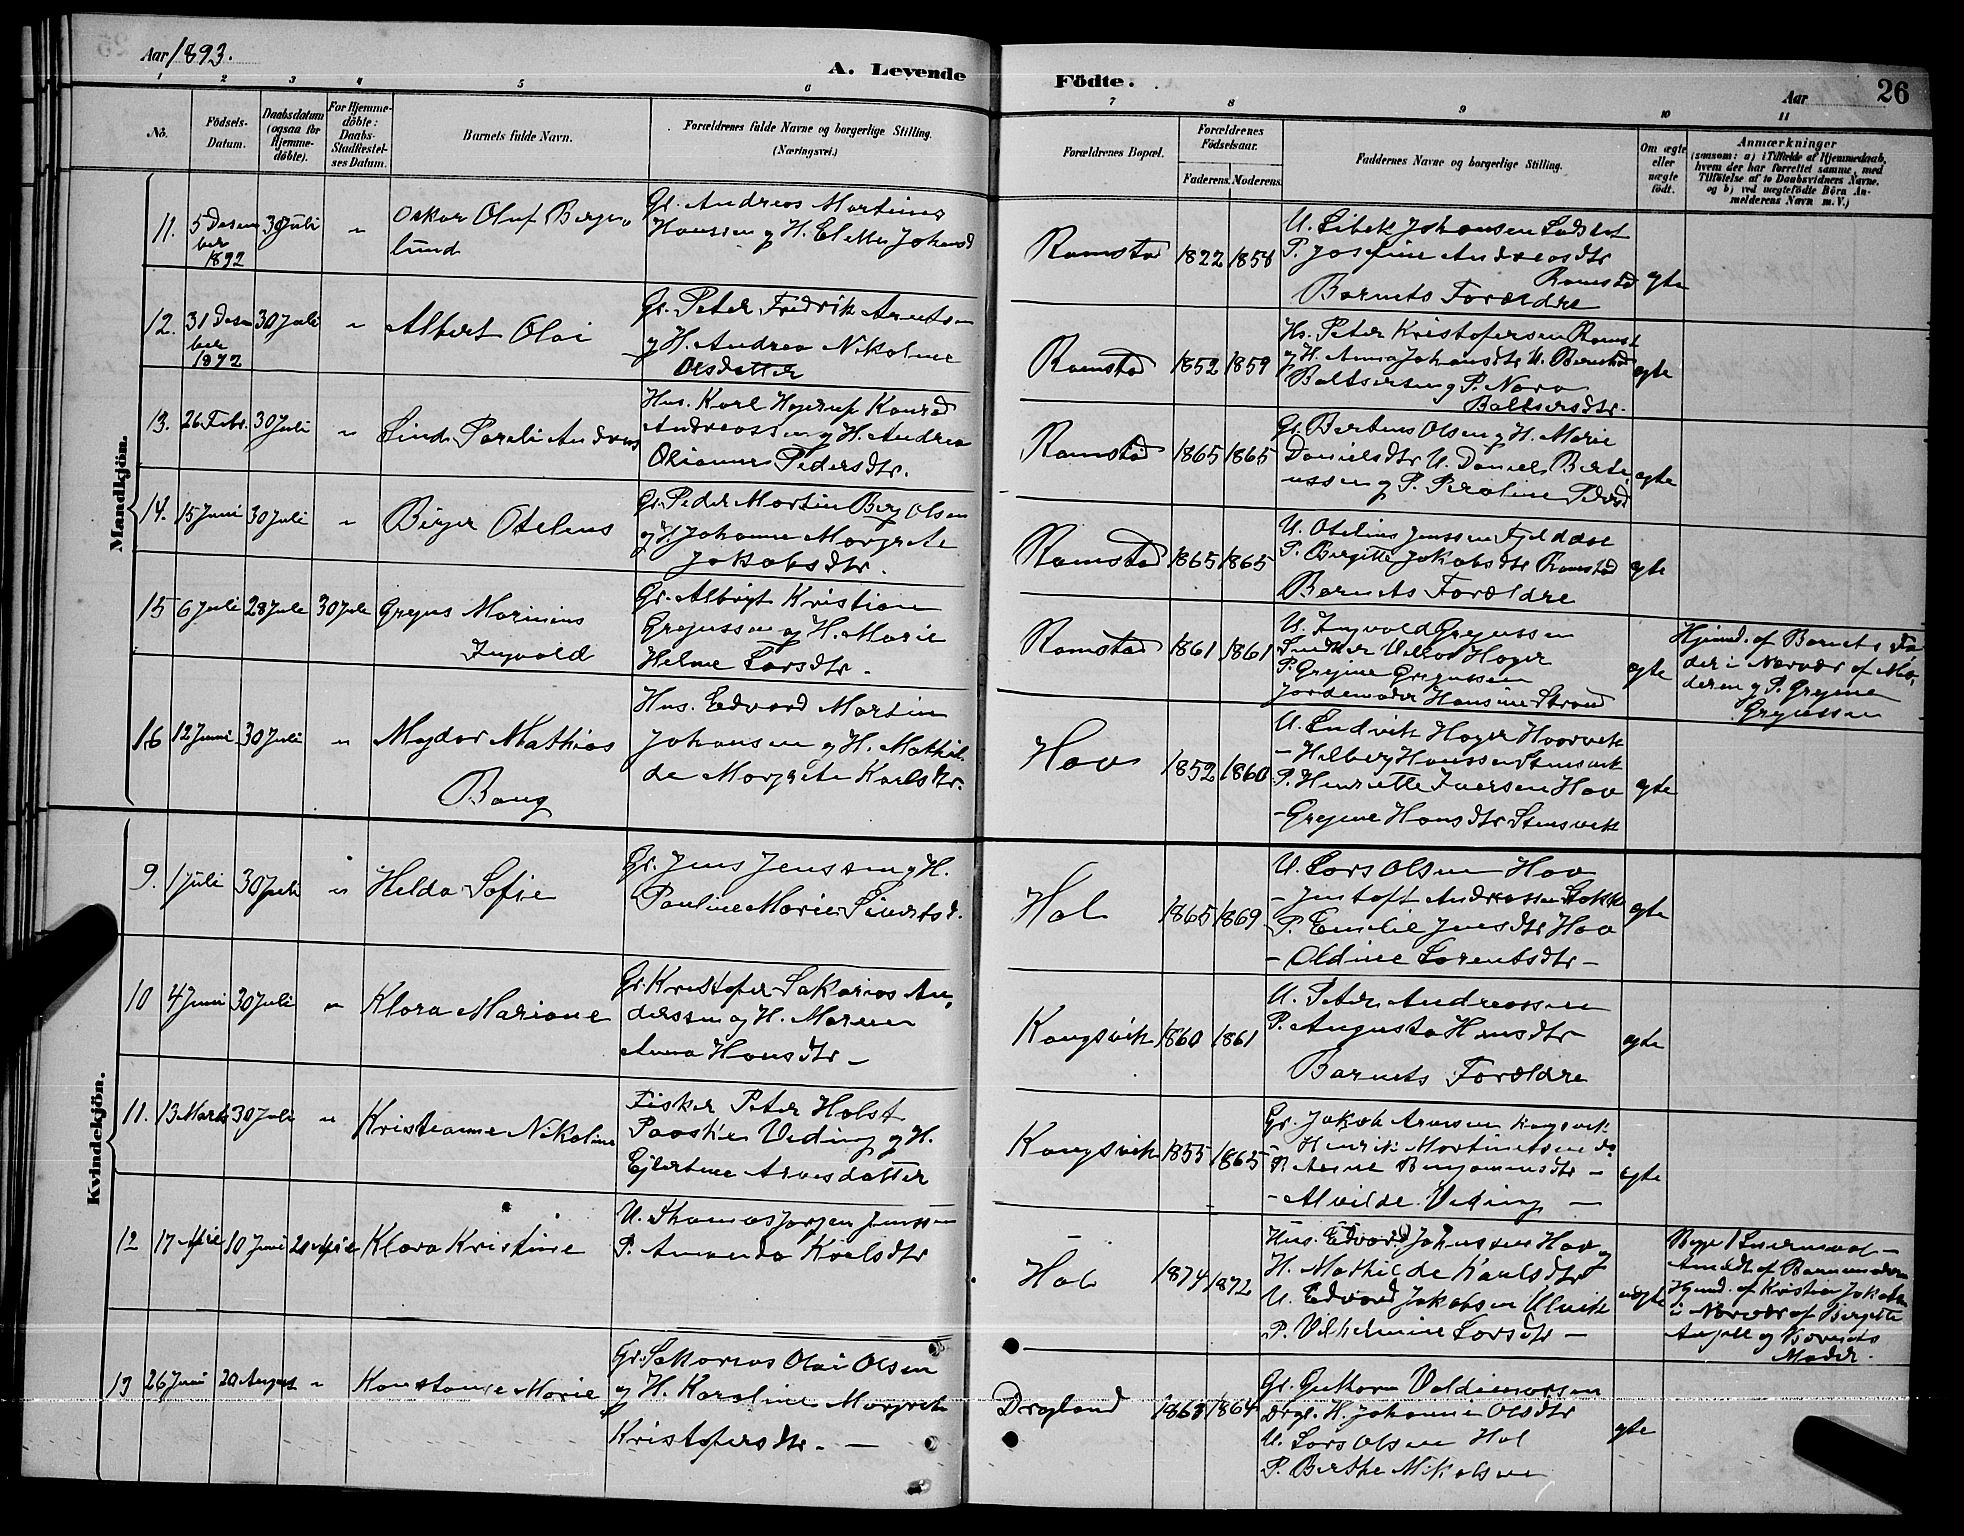 Aar 1893.
A. Levende Födte.
Aar
26
1 2 3 4 5 6 7 8 9 10 11
No.
Födsels-Datum.
Daabsdatum (ogsaa for Hjemme-döbte).
For Hjemme-döbte: Daabs-Stadfestel-ses Datum.
Barnets fulde Navn.
Forældrenes fulde Navne og borgerlige Stilling. (Næringsvei.)
Forældrenes Bopæl.
Forældrenes Födselsaar.
Faderens. Moderens.
Faddernes Navne og borgerlige Stilling.
Om ægte eller uægte födt.
Anmærkninger
(saasom: a) i Tilfælde af Hjemmedaab,
hvem der har forrettet samme, med
Tilföielse af to Daabsvidners Navne,
og b) ved uægtefödte Börn An-
melderens Navn m. V.)
Mandkjön.
11. 5 Desem
ber
1892
30 Juli
"
Oskar Oluf Berge
lund
Gr. Andreas Martinus
Hansen og H.
Ramstad 1822 1858
U. Johansen
P. Josefine Andreasdtr
Ramstad
Barnets Forældre
egte
12. 31 Desem
ber
1892
30 Juli
"
Albert Olai
Gr. Peter Fredrik Arnts-
og H. Andrea Nikoline
Olsdatter
Ramstad 1852 1859
Hs. Peter Kristofersen Ramst
og H. Anna Johansdtr U.
Baltsersen og P. Nora
Baltsersdtr.
egte
13. 26 Febr. 30 Juli
"
Hus. Karl Hagerup Konrad
Andreassen og H. Andrea
Pedersdtr.
Ramstad 1865 1865
Gr. Berteus Olsen og H. Marie
Danielsdtr U. Daniel Berte
ussen og P. Peroline
egte
14. 15 Juni 30 Juli
"
Birger Otelens
Gr. Peder Martin Berg Olsen
og H. Johanne Margrete
Jakobsdtr.
Ramstad 1865 1865
U. Otelius Jenssen
P. Birgitte Jakobsdtr Ramstad
Barnets Forældre
egte
15 6 Juli 28 Juli 30 Juli
Gregus Marinius
Ingvald
Gr. Albrigt Kristian
Gregussen og H. Marie
Helene Larsdtr.
Ramstad 1861 1861
U. Ingvald Gregussen
P. Gregine Gregussen
Jordemoder Hansine Strand
egte
Hjemd. af Barnets Fa
der i Nærvær af Mo
deren og P. Gregine
Gregussen
16 12 Juni 30 Juli
"
Magdor Mathias
Bang
Hus. Edvard Martin
Johansen og H. Mathil
de Margrete Karlsdtr.
Hov 1852 1860
U. Ludvik Hager
- Hilberg Hanssen Stensvik
P. Henriette Iversen Hov
- Gregine Hansdtr Stensvik
egte
Kvindekjön.
9. 1 Juli 30 Juli
"
Hilda Sofie
Gr. Jens Jenssen og H.
Pauline Marie
Hol 1865 1869
U. Lars Olsen Hov
- Jentoft Andreassen
P. Emilie Jensdtr Hov
- Oldine Lorentsdtr -
egte
10 4 Juni 30 Juli
"
Klara Mariane
Gr. Kristofer Sakarias An
derssen og H. Maren
Anna Hansdtr -
Kongsvik 1860 1861
U. Peter Andreassen
P. Augusta Hansdtr
Barnets Forældre
egte
11. 13 Marts 30 Juli
"
Kristianne Nikoline
Fisker Peter Holst
Paaske Veding og H.
Ejlertine Arnesdatter
Kongsvik 1855 1865
Gr. Jakob Arnesen Kongsvik
- Henrik Martinussen do
P. Anne Benjaminsdtr -
- Alvilde Veding -
egte
12 17 10 Juni
Klara Kristine
U. Thomas Jørgen Jenssen
P. Amanda Karlsdtr
Hol 1874 1872
Hus. Edvard Johansen Hov og
H. Mathilde Karlsdtr
U. Edvard Jakobsen Ulvik
P. Vilhelmine Larsdtr -
uegte
Anmeldt af Barnemoderen
Hjemd. af Kristian Jakobsen
i Nærvær af Bergitte
Angell og Barnets
Moder.
13 26 Juni 20 August
"
Konstanse Marie
Gr. Sakarias Olai Olsen
og H. Karoline Margrete
Kristofersdtr. -
Dragland 1863 1864
Gr. Guttorm Valdemarsen
Dragl. H. Johanne Olsdtr
U. Lars Olsen Hol
P. Berthe Nikolsen
egte